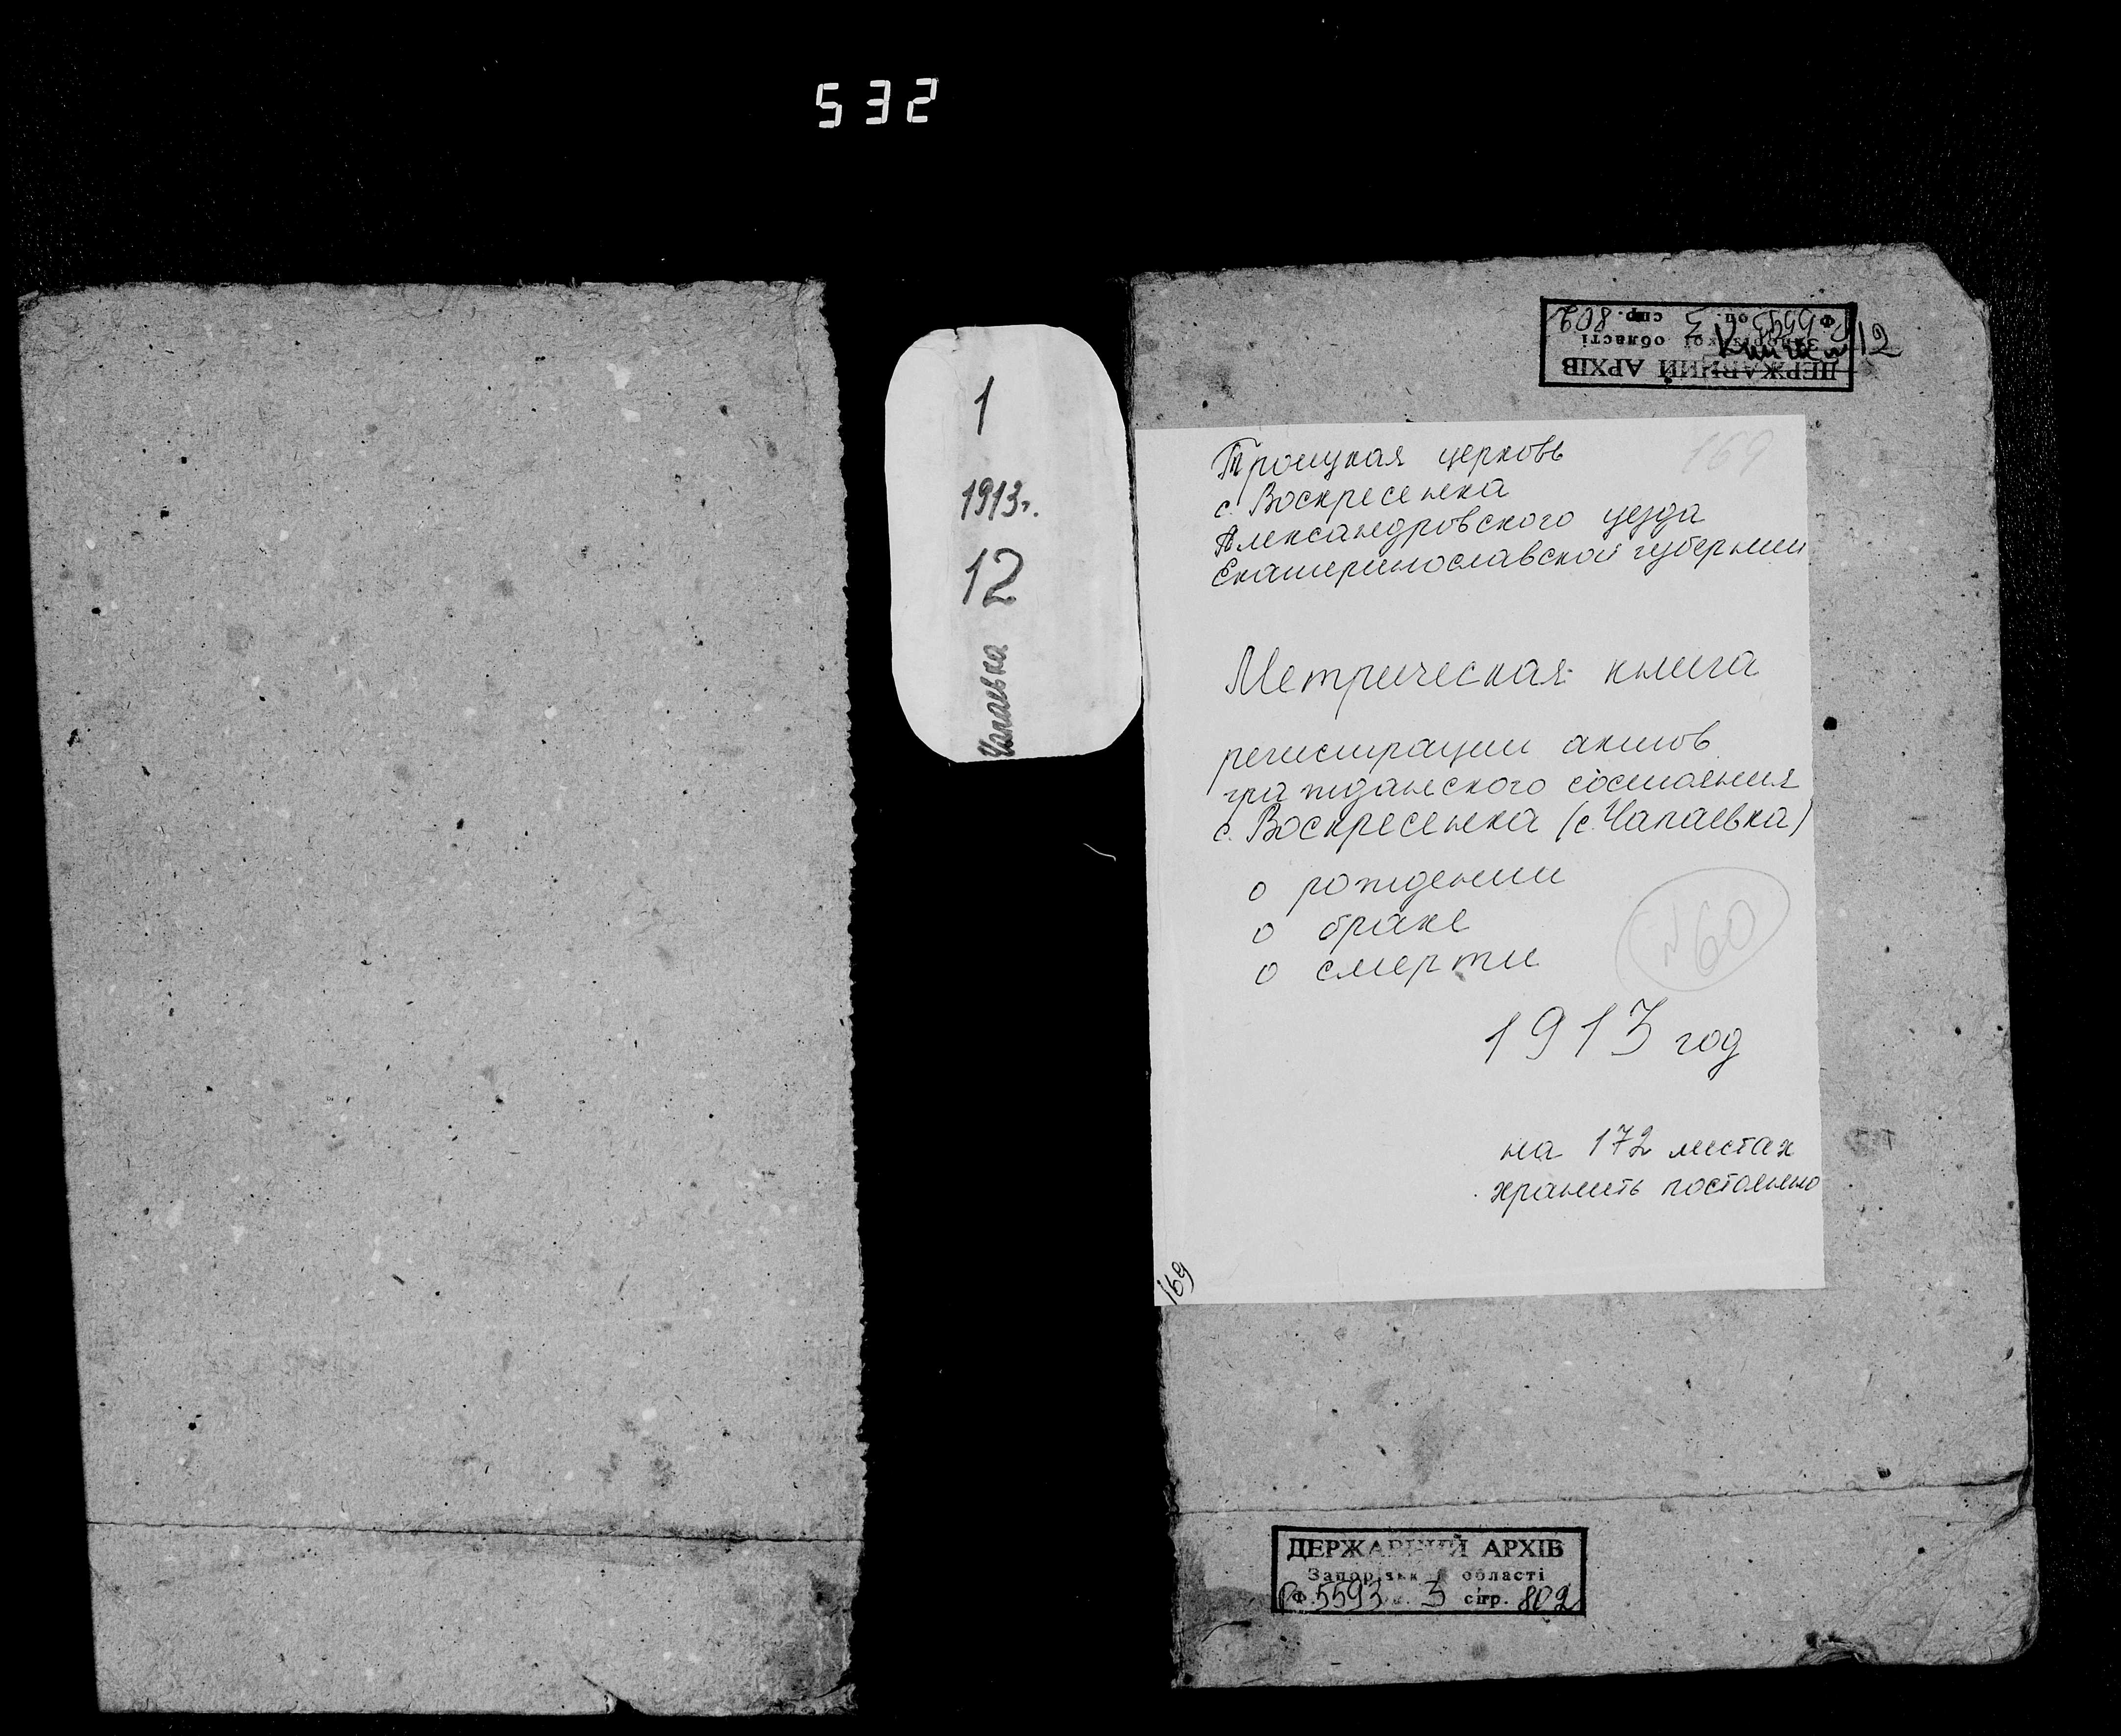 532
1
1913г.
12
Чапаевка
ДЕРЖАВНИЙ АРХІВ
Запорізької області
Ф. Р5593 оп. 3 спр. 802
12
169
Троицкая церковь
с. Воскресенка
Александровского уезда
Екатеринославской губернии
Метрическая книга
регистрации актов
гражданского состояния
с. Воскресенка (с. Чапаевка)
о рождении
о браке
о смерти
N60
1913 год
на 172 листах
хранить постоянно
169
ДЕРЖАВНИЙ АРХІВ
Запорізької області
РФ. 5593 3 спр. 802